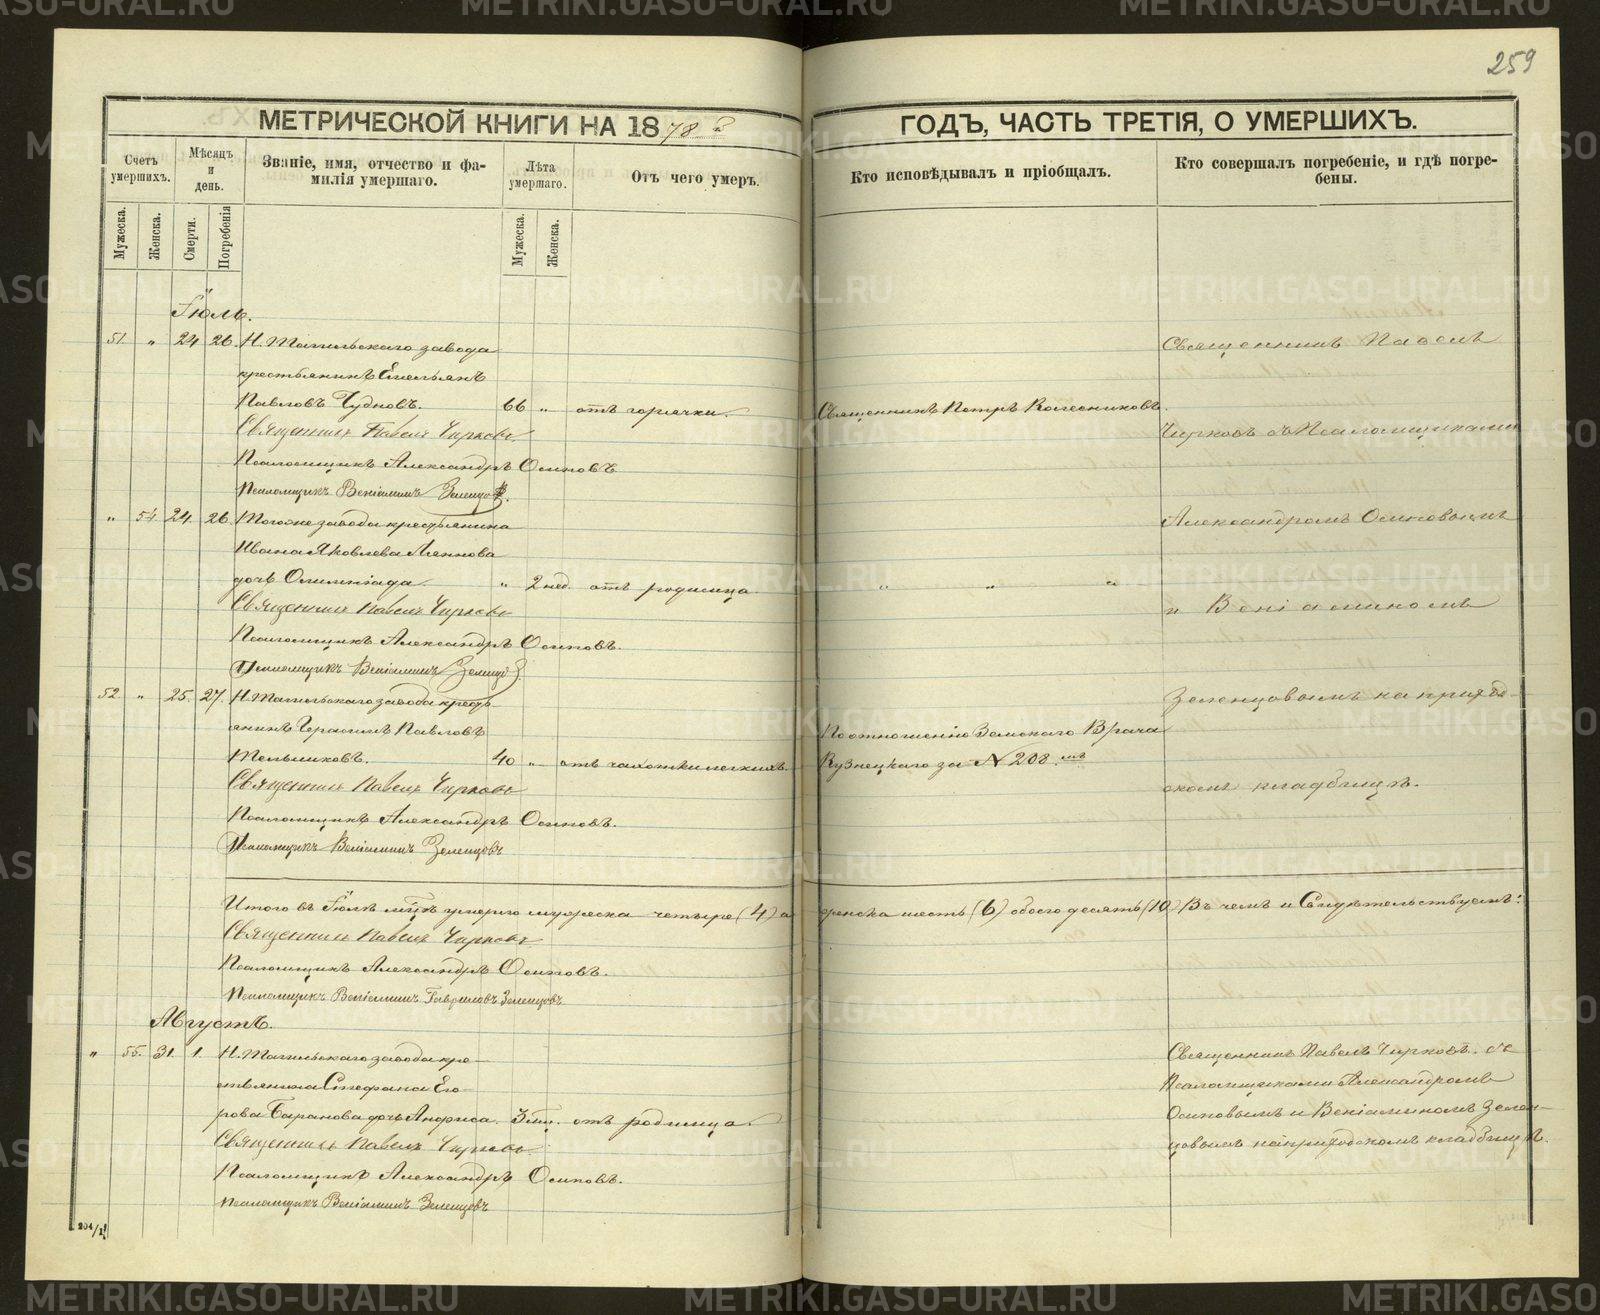 259
МЕТРИЧЕСКОЙ КНИГИ НА 1878 ГОДЪ, ЧАСТЬ ТРЕТІЯ, О УМЕРШИХЪ.
Счетъ умершихъ.
Мужеска.
Женска.
Мѣсяцъ и день.
Смерти.
Погребенія
Званіе, имя, отчество и фа-
милія умершаго.
Лѣта умершаго.
Мужеска.
Женска.
Отъ чего умеръ.
Кто исповѣдывалъ и пріобщалъ.
Кто совершалъ погребеніе, и гдѣ погре-
бены.
Іюль.
51. " 24 26. Н. Тагильскаго завода
крестьянинъ Емельянъ
Павловъ Чудновъ. 66 " отъ горячки. Священникъ Петръ Колесниковъ.
Священникъ Павелъ Чирковъ
Псаломщикъ Александръ Осиповъ
Псаломщикъ Веніаминъ Зеленцовъ.
" 54 24. 26 Тогоже завода крестьянина
Ивана Яковлева
дочь Олимпіада " 2 нед. отъ родимца " " "
Священникъ Павелъ Чирковъ
Псаломщикъ Александръ Осиповъ.
Псаломщикъ Веніаминъ Зеленцовъ
52 " 25. 27. Н. Тагильскаго завода кресть-
янинъ Герасимъ Павловъ
Мельниковъ. 40 " отъ чахотки легкихъ.
По отношенію Земскаго Врача
Кузнецкаго за № 208.мъ
Священникъ Павелъ Чирковъ
Псаломщикъ Александръ Осиповъ.
Псаломщикъ Веніаминъ Зеленцовъ
Священникъ Павелъ
Чирковъ съ Псаломщиками
Александромъ Осиповымъ
и Веніаминомъ
Зеленцовымъ на приход-
скомъ кладбищѣ.
Итого въ Іюлѣ мцѣ умерло мужеска четыре (4) а женска шесть (6) обоего десять (10) Въ чемъ и Свидѣтельствуемъ:
Священникъ Павелъ Чирковъ
Псаломщикъ Александръ Осиповъ.
Псаломщикъ Веніаминъ Гавриловъ Зеленцовъ
Августъ.
" 55. 31. 1. Н. Тагильскаго завода кре-
стьянина Стефана Его-
рова Баранова дочь Анфиса. 3 мц. отъ родимца.
Священникъ Павелъ Чирковъ
Псаломщикъ Александръ Осиповъ.
Псаломщикъ Веніаминъ Зеленцовъ
Священникъ Павелъ Чирковъ. съ
Псаломщиками Александромъ
Осиповымъ и Веніаминомъ Зелен-
цовымъ на приходскомъ кладбищѣ.
204/1
METRIKI.GASO-URAL.RU